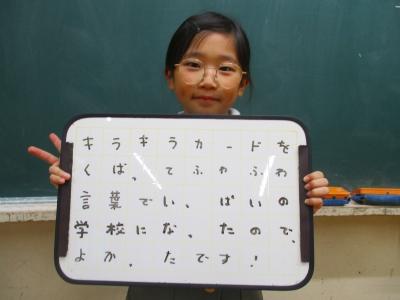 キラキラカードを
くばって、ふわふわ
言葉でいっぱいの
学校になったので、
よかったです!